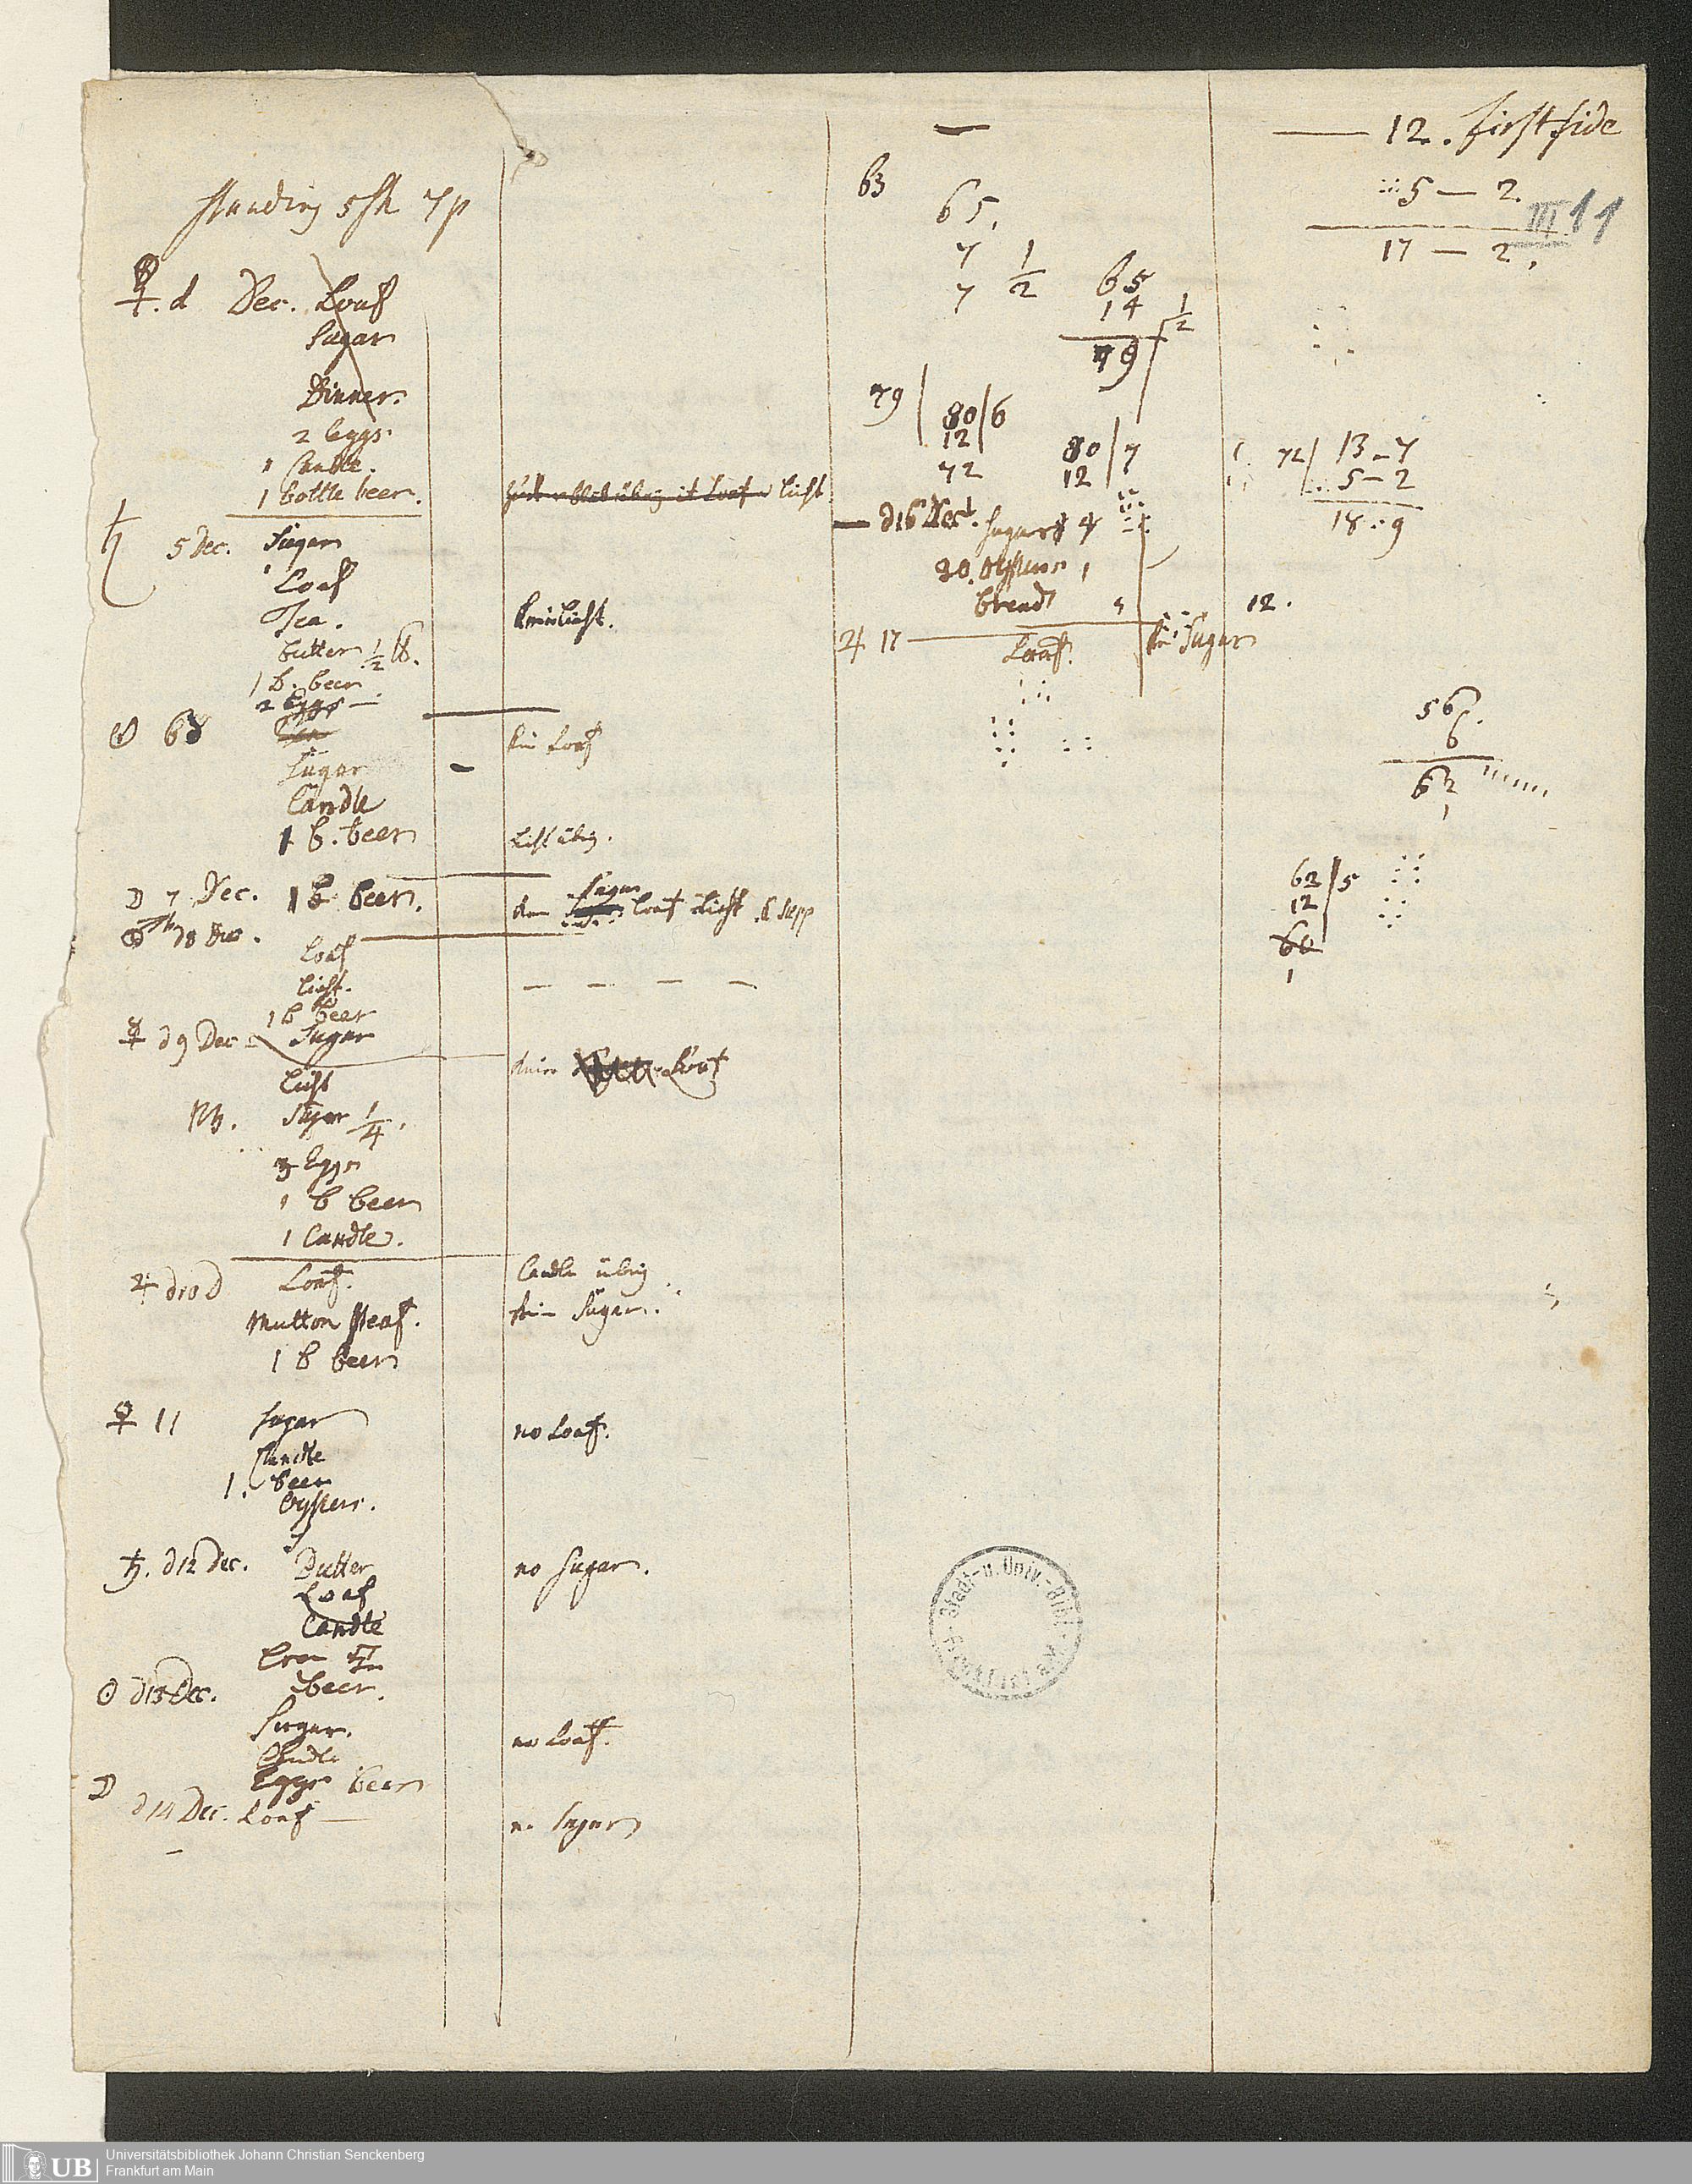 standing 5 sh 7 p
♀. d Dec. Loaf
Sugar
Dinner.
2 Eggs.
1 Candle.
1 bottle beer.
Licht
♄ 5 Dec. Sugar
Loaf
Tea.
butter ½ lb.
kein Licht.
1 b. beer
2 Eggs —
☉ 6
kein Loaf
Sugar
Candle
1 b. beer
Licht übrig.
☽ 7 Dec. 1 b beer.
Sugar
Loaf Licht
d 8 Dec.
Loaf
Licht.
1 b beer
☿ d 9 Dec Sugar
Loaf
Licht
Sugar ¼.
3 Eggs
1 b beer
1 Candle.
♃ d 10 D Loaf.
Candle übrig
kein Sugar.
1 b beer
♀ 11 Sugar
no Loaf.
Candle
1. beer
Oysters.
♄. d 12 Dec. Butter
no Sugar.
Loaf
Candle
☉ d 13 Dec. beer.
Sugar.
no Loaf.
Candle
Eggs beer
☽ d 14 Dec. Loaf —
no Sugar
—
63
65.
7 ½
7
65
14 ½
79
79
80 | 6
12
72
80 | 7
12
— d 16 Dec. Sugar 4
30 Oysters 1
bread
♃ 17 — Loaf. kein Sugar
— 12. first side
5 — 2.
III 11
17 — 2.
72 | 13 - 7
5 - 2
18 : 9
12.
56.
6
62
1
62 | 5
12
60
1
Stadt-u. Univ.-Bibl.
Frankfurt a.M.
UB Universitätsbibliothek Johann Christian Senckenberg
Frankfurt am Main